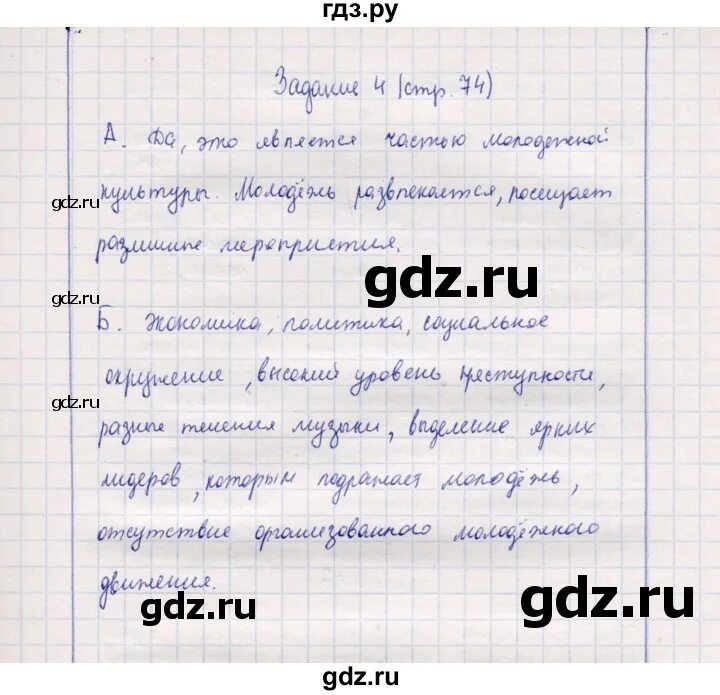 гдз.ру
Задание 4 (стр. 74)
А. Да, это является частью молодежной
культуры. Молодёжь развлекается, посещает
gdz.ru
различные мероприятия.
gdz.ru
gdz.ru
Б. Экономика, политика, социальное
окружение, высокий уровень преступности,
gdz.ru
разные течения музыки, выделение ярких
лидеров, которым подражает молодёжь,
отсутствие организованного молодёжного
движения.
gdz.ru
gdz.ru
gdz.ru